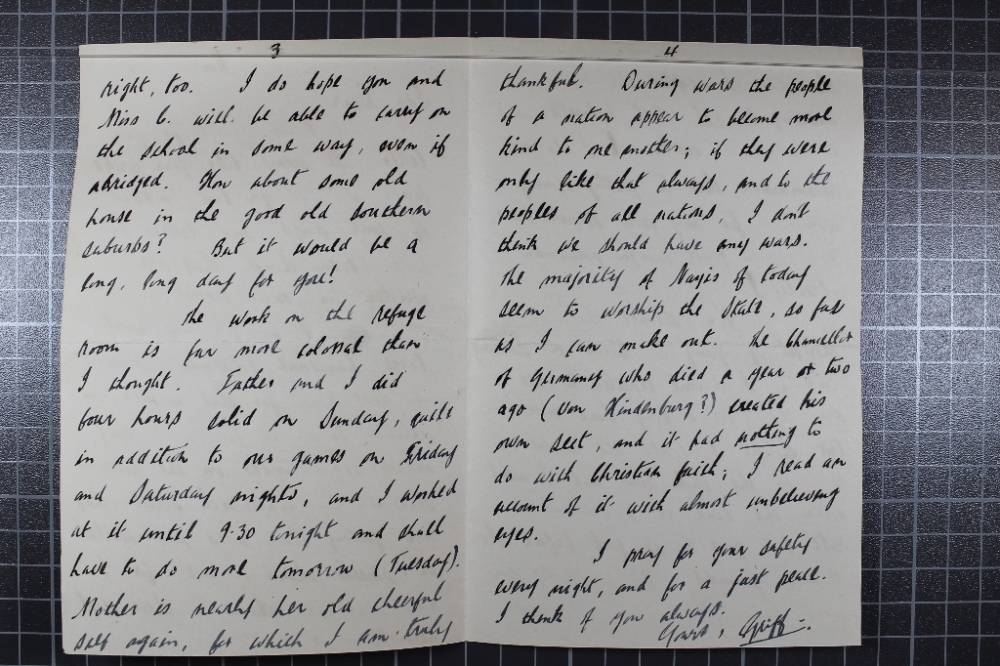 3
right, too. I do hope you and
Miss C. will be able to carry on
the school in some way, even if
abridged. How about some old
house in the good old southern
suburbs? But it would be a
long, long day for you!
The work on the refuge
room is far more colossal than
I thought. Father and I did
four hours solid on Sunday, quite
in addition to our games on Friday
and Saturday nights, and I worked
at it until 9.30 tonight and shall
have to do more tomorrow (Tuesday).
Mother is nearly her old cheerful
self again, for which I am truly
4
thankful. During wars the people
of a nation appear to become more
kind to one another; if they were
only like that always, and to the
peoples of all nations, I don't
think we should have any wars.
The majority of Nazis of today
seem to worship the State, so far
as I can make out. The Chancellor
of Germany who died a year or two
ago (Von Hindenburg?) created his
own sect, and it had nothing to
do with Christian faith; I read an
account of it with almost unbelieving
eyes.
I pray for your safety
every night, and for a just peace.
I think of you always.
Yours, Griff -.